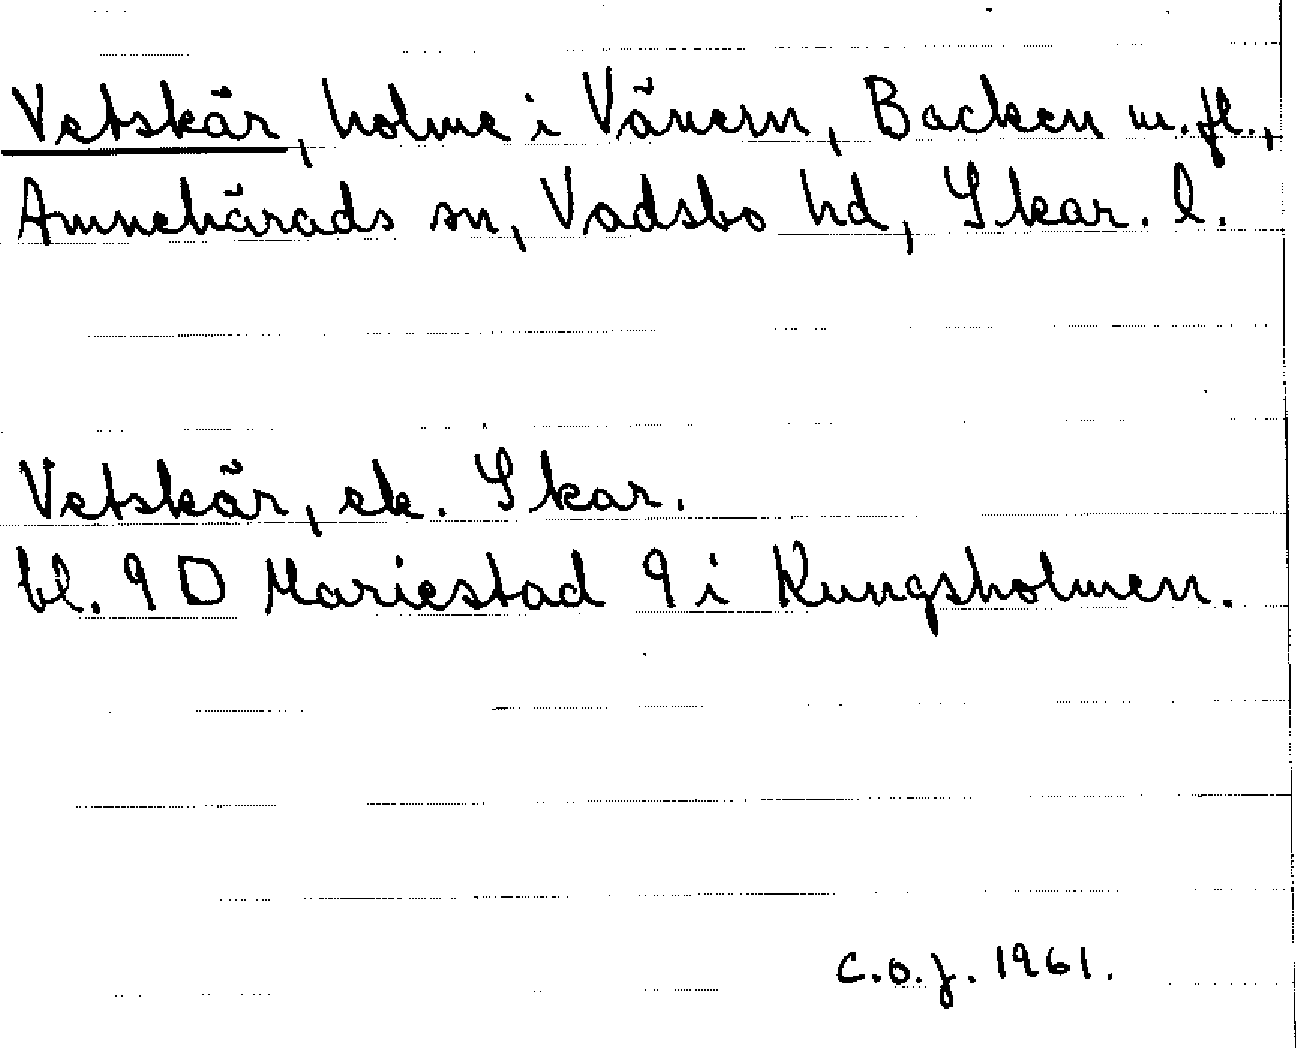 Vetskär, holme i Vänern, Backen m.fl.,
Amnehärads sn, Vadsbo hd, Skar. l.
Vetskär, ek. Skar.
bl. 9 D Mariestad 9 i Kungsholmen.
C.O.J. 1961.